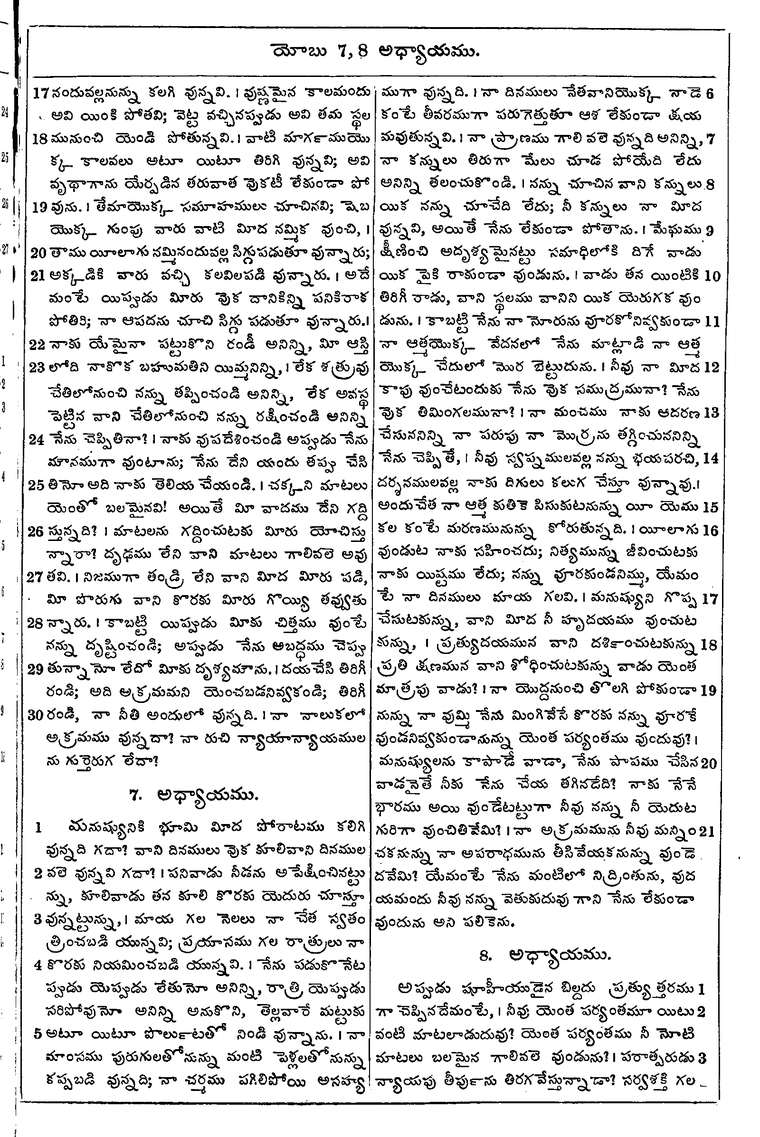 యోబు 7, 8 అధ్యాయము.
17 నందువల్లనున్ను కలగి వున్నవి. । వుష్ణమైన కాలమందు
అవి యింకి పోతవి; వెట్ట వచ్చినప్పుడు అవి తమ స్థల
18 మునుంచి యెండి పోతున్నవి. । వాటి మార్గముయొ
క్క కాలవలు అటూ యిటూ తిరిగి వున్నవి; అవి
వృథాగాను యేర్పడిన తరువాత వొకటీ లేకుండా పో
19 వును. । తేమాయొక్క సమూహములు చూచినవి; షెబ
యొక్క గుంపు వారు వాటి మీద నమ్మిక వుంచి, ।
20 తాము యీలాగు నమ్మినందువల్ల సిగ్గుపడుతూ వున్నారు;
21 అక్కడికి వారు వచ్చి కలవిలపడి వున్నారు. । అదే
మంటే యిప్పుడు మీరు వొక దానికిన్ని పనికిరాక
పోతిరి; నా ఆపదను చూచి సిగ్గు పడుతూ వున్నారు. ।
22 నాకు యేమైనా పట్టుకొని రండీ అనిన్ని, మీ ఆస్తి
23 లోది నాకొక బహుమతిని యిమ్మనిన్ని, । లేక శత్రువు
చేతిలోనుంచి నన్ను తప్పించండి అనిన్ని, లేక అవస్థ
పెట్టిన వాని చేతిలోనుంచి నన్ను రక్షించండి అనిన్ని
24 నేను చెప్పితినా? । నాకు వుపదేశించండి అప్పుడు నేను
మౌనముగా వుంటాను; నేను దేని యందు తప్పు చేసి
25 తినో అది నాకు తెలియ చేయండి. । చక్కని మాటలు
యెంతో బలమైనవి! అయితే మీ వాదము దేని గద్ది
26 స్తున్నది? । మాటలను గద్దించుటకు మీరు యోచిస్తు
న్నారా? దృఢము లేని వాని మాటలు గాలివలె అవు
27 తవి. । నిజముగా తండ్రి లేని వాని మీద మీరు పడి,
మీ పొరుగు వాని కొరకు మీరు గొయ్యి తవ్వుతు
28 న్నారు. । కాబట్టి యిప్పుడు మీకు చిత్తము వుంటే
నన్ను దృష్టించండి; అప్పుడు నేను అబద్ధము చెప్పు
29 తున్నానో లేదో మీకు దృశ్యమౌను. । దయచేసి తిరిగీ
రండి; అది అక్రమమని యెంచబడనివ్వకండి; తిరిగీ
30 రండి, నా నీతి అందులో వున్నది. । నా నాలుకలో
అక్రమము వున్నదా? నా రుచి న్యాయాన్యాయముల
ను గుర్తెరుగ లేదా?
7. అధ్యాయము.
1 మనుష్యునికి భూమి మీద పోరాటము కలిగి
వున్నది గదా? వాని దినములు వొక కూలివాని దినముల
2 వలె వున్నవి గదా? । పనివాడు నీడను అపేక్షించినట్టు
న్ను, కూలివాడు తన కూలి కొరకు యెదురు చూస్తూ
3 వున్నట్టున్ను, । మాయ గల నెలలు నా చేత స్వతం
త్రించబడి యున్నవి; ప్రయాసము గల రాత్రులు నా
4 కొరకు నియమించబడి యున్నవి. । నేను పడుకొనేట
ప్పుడు యెప్పుడు లేతునో అనిన్ని, రాత్రి యెప్పుడు
సరిపోవునో అనిన్ని అనుకొని, తెల్లవారే మట్టుకు
5 అటూ యిటూ పొర్లుటతో నిండి వున్నాను. । నా
మాంసము పురుగులతోనున్ను మంటి పెళ్లలతోనున్ను
కప్పబడి వున్నది; నా చర్మము పగిలిపోయి అసహ్య
ముగా వున్నది. । నా దినములు నేతవానియొక్క నాడె 6
కంటే తీవరముగా పరుగెత్తుతూ ఆశ లేకుండా క్షయ
మవుతున్నవి. । నా ప్రాణము గాలి వలె వున్నది అనిన్ని, 7
నా కన్నులు తిరుగా మేలు చూడ పోయేది లేదు
అనిన్ని తలంచుకొండి. । నన్ను చూచిన వాని కన్నులు 8
యిక నన్ను చూచేది లేదు; నీ కన్నులు నా మీద
వున్నవి, అయితే నేను లేకుండా పోతాను. । మేఘము 9
క్షీణించి అదృశ్యమైనట్టు సమాధిలోకి దిగే వాడు
యిక పైకి రాకుండా వుండును. । వాడు తన యింటికి 10
తిరిగీ రాడు, వాని స్థలము వానిని యిక యెరుగక వుం
డును. । కాబట్టి నేను నా నోరును వూరకోనివ్వకుండా 11
నా ఆత్మయొక్క వేదనలో నేను మాట్లాడి నా ఆత్మ
యొక్క చేదులో మొర బెట్టుదును. । నీవు నా మీద 12
కాపు వుంచేటందుకు నేను వొక సముద్రమునా? నేను
వొక తిమింగలమునా? । నా మంచము నాకు అదరణ 13
చేసుననిన్ని నా పరుపు నా మొర్రను తగ్గించుననిన్ని
నేను చెప్పితే, । నీవు స్వప్నములవల్ల నన్ను భయపరచి, 14
దర్శనములవల్ల నాకు దిగులు కలుగ చేస్తూ వున్నావు. ।
అందుచేత నా ఆత్మ కుతికె పిసుకుటనున్ను యీ యెము 15
కల కంటే మరణమునున్ను కోరుతున్నది. । యీలాగు 16
వుండుట నాకు సహించదు; నిత్యమున్ను జీవించుటకు
నాకు యిష్టము లేదు; నన్ను వూరకుండనిమ్ము, యేమం
టే నా దినములు మాయ గలవి. । మనుష్యుని గొప్ప 17
చేసుటకున్ను, వాని మీద నీ హృదయము వుంచుట
కున్ను, । ప్రత్యుదయమున వాని దర్శించుటకున్ను 18
ప్రతి క్షణమున వాని శోధించుటకున్ను వాడు యెంత
మాత్రపు వాడు? । నా యొద్దనుంచి తొలగి పోకుండా 19
నున్ను నా వుమ్మి నేను మింగివేసే కొరకు నన్ను వూరకే
వుండనివ్వకుండానున్ను యెంత పర్యంతము వుందువు? ।
మనుష్యులను కాపాడే వాడా, నేను పాపము చేసిన 20
వాడనైతే నీకు నేను చేయ తగినదేది? నాకు నేనే
భారము అయి వుండేటట్టుగా నీవు నన్ను నీ యెదుట
గురిగా వుంచితివేమి? । నా అక్రమమును నీవు మన్నిం 21
చకనున్ను నా అపరాధమును తీసివేయకనున్ను వుండె
దవేమి? యేమంటే నేను మంటిలో నిద్రింతును, వుద
యమందు నీవు నన్ను వెతుకుదువు గాని నేను లేకుండా
వుందును అని పలికెను.
8. అధ్యాయము.
అప్పుడు షూహీయుడైన బిల్దదు ప్రత్యుత్తరము 1
గా చెప్పినదేమంటే, । నీవు యెంత పర్యంతమూ యిటు 2
వంటి మాటలాడుదువు? యెంత పర్యంతము నీ నోటి
మాటలు బలమైన గాలివలె వుండును? । పరాత్పరుడు 3
న్యాయపు తీర్పును తిరగవేస్తున్నాడా? సర్వశక్తి గల